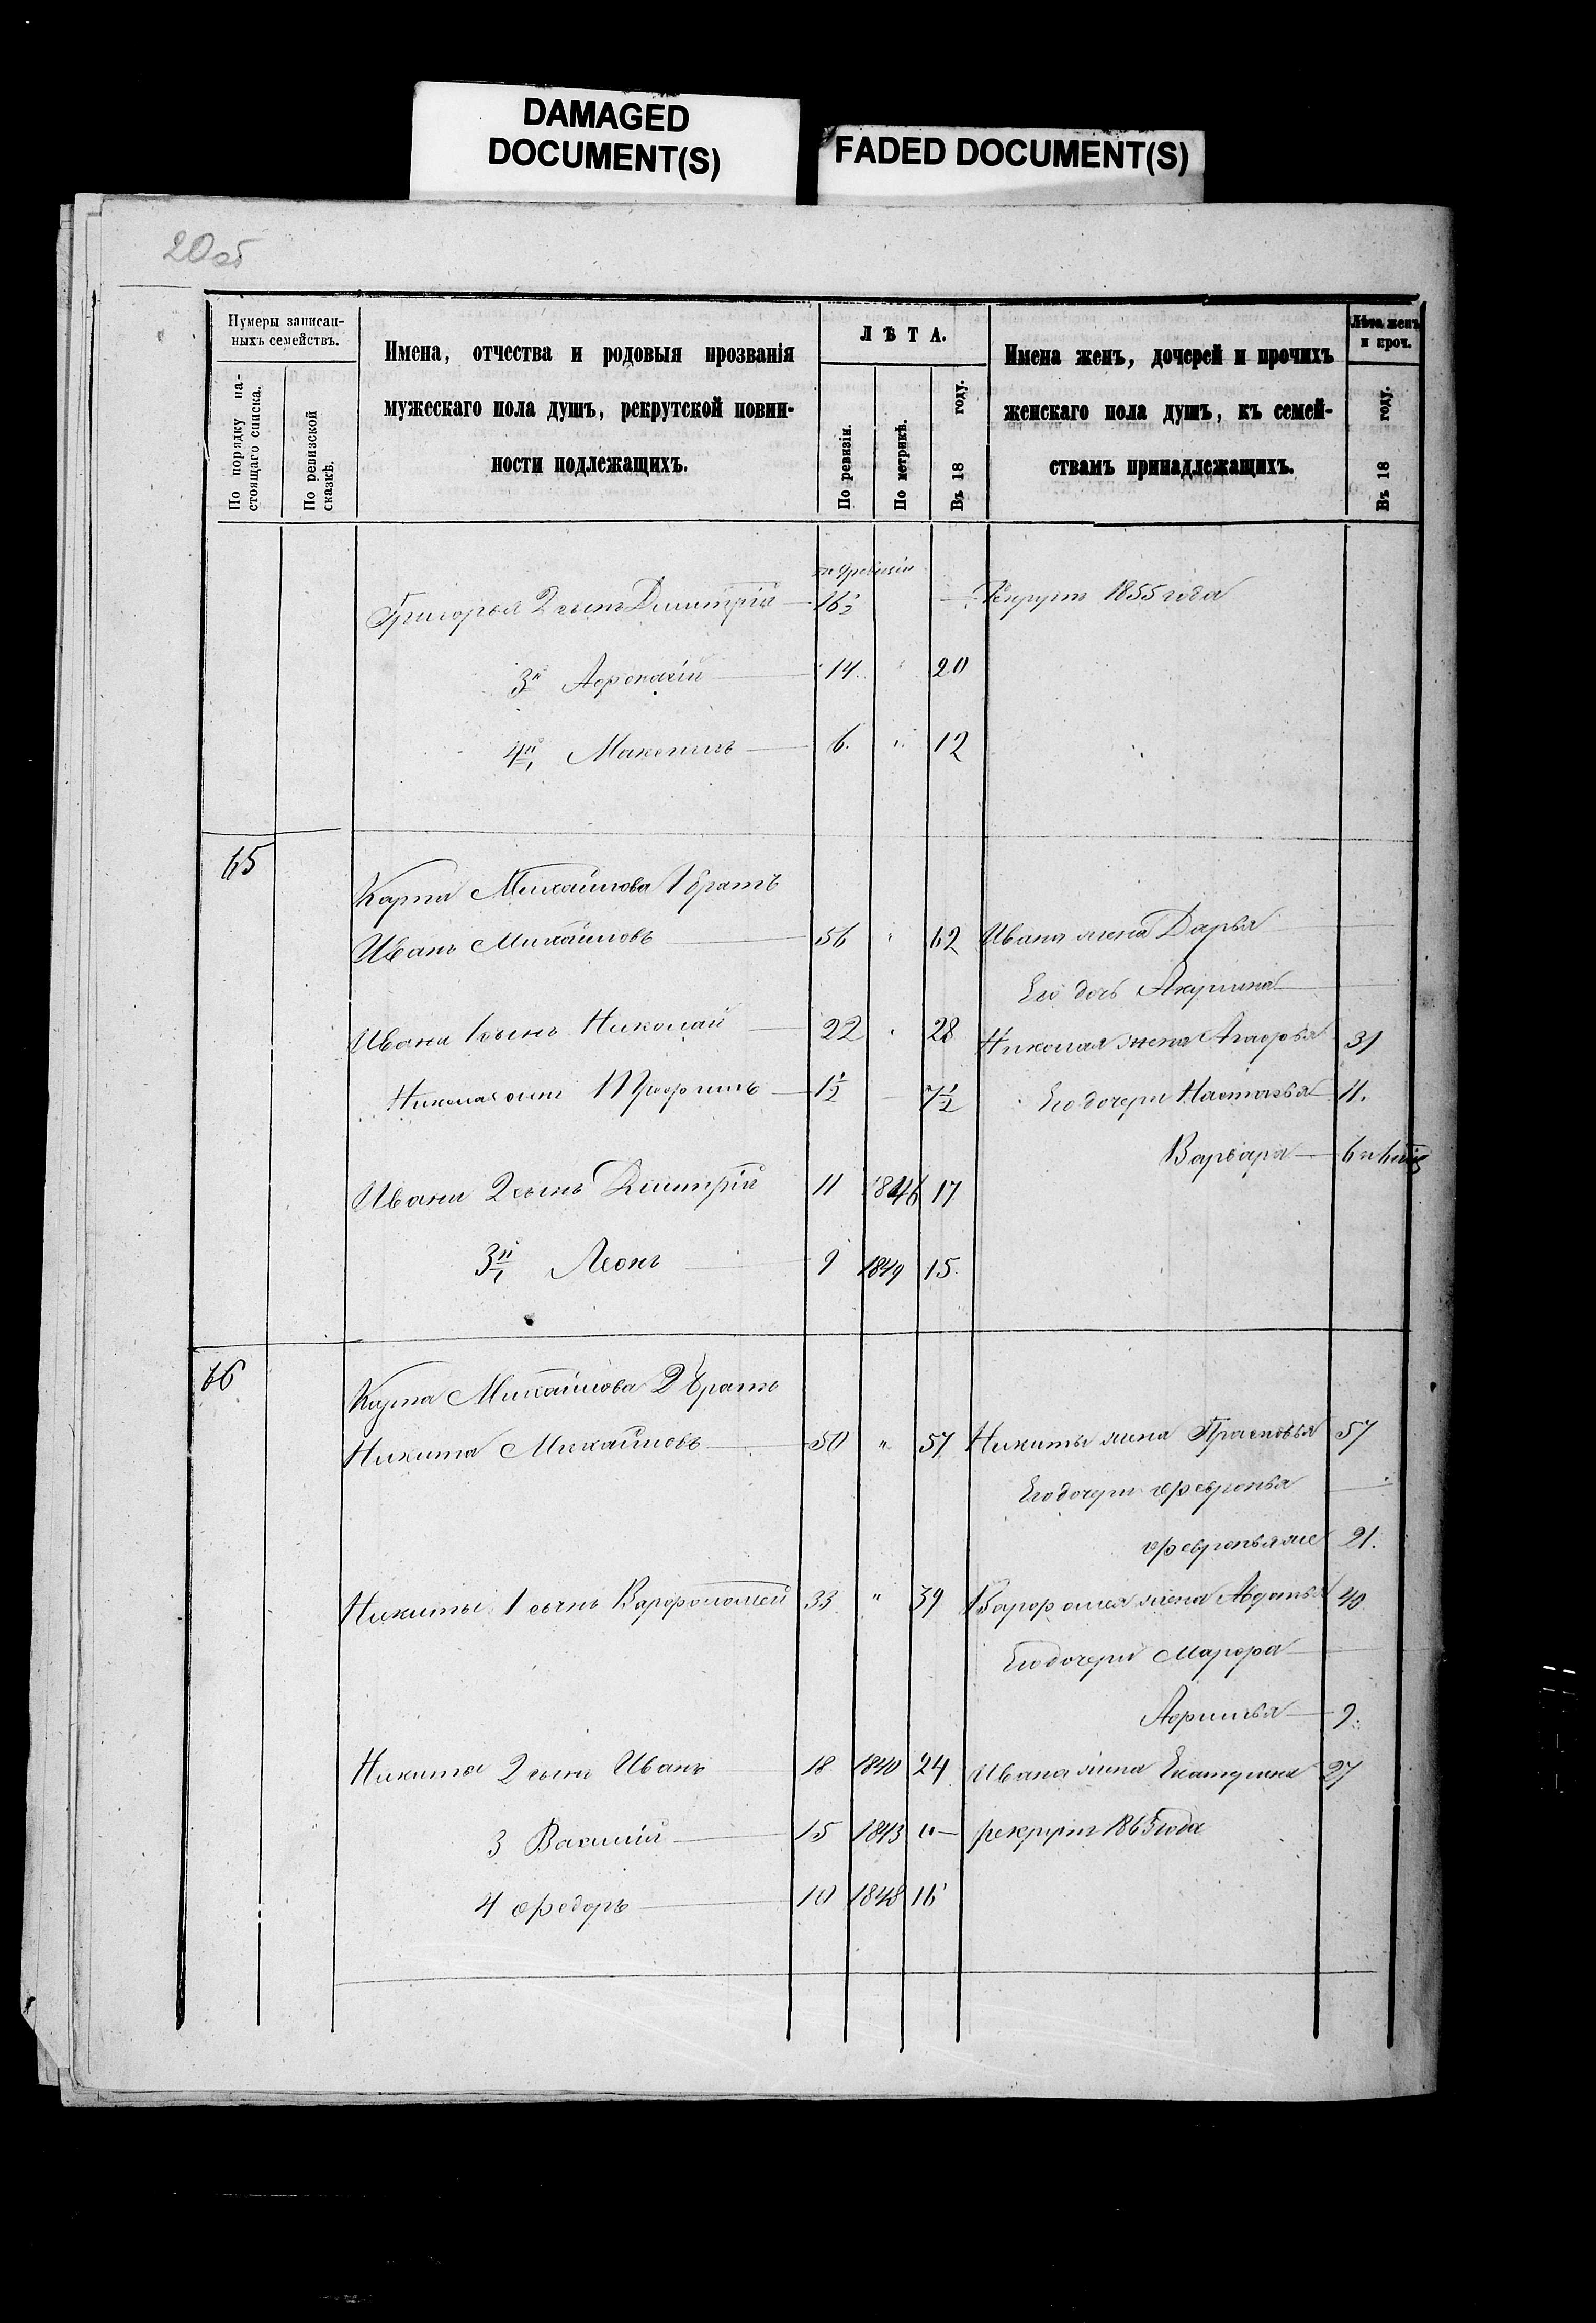 DAMAGED
DOCUMENT(S)
FADED DOCUMENT(S)
20об
Нумеры записан-
ныхъ семействъ.
По порядку на-
стоящаго списка.
По ревизской
сказкѣ.
Имена, отчества и родовыя прозванія
мужескаго пола душъ, рекрутской повин-
ности подлежащихъ.
ЛѢТА.
По ревизіи.
По метрикѣ.
Въ 18 году.
Имена женъ, дочерей и прочихъ
женскаго пола душъ, къ семей-
ствамъ принадлежащихъ.
Лѣта женъ
и проч.
Въ 18 году.
Григорья 2 сынъ Димитрій 16 Рекрутъ 1855 года
3й Афонасій 14 20
4й Максимъ 6. 12
65
Карпа Михайлова 1 братъ
Иванъ Михайловъ 56 " 62 Ивана жена Дарья
Его дочь Акулина
Ивана 1 сынъ Николай 22 " 28 Николая жена Агафья 31
Николая сынъ Трофимъ 1½ 7½ Его дочери Настасья 11.
Варвара 6
Ивана 2 сынъ Димитрій 11 1846 17
3й Леонъ 9 1849 15.
66
Карпа Михайлова 2 братъ
Никита Михайловъ 50 " 57 Никиты жена Прасковья 57
Его дочери Февронья
Февронья же 21.
Никиты 1 сынъ Варфоломей 33 " 39 Варфоломея жена Авдотья 40
Его дочери Марфа
Афимья 9.
Никиты 2 сынъ Иванъ 18 1840 24 Ивана жена Екатерина 27
3 Василій 15 1843 " рекрутъ 1863 года
4 Федоръ 10 1848 16